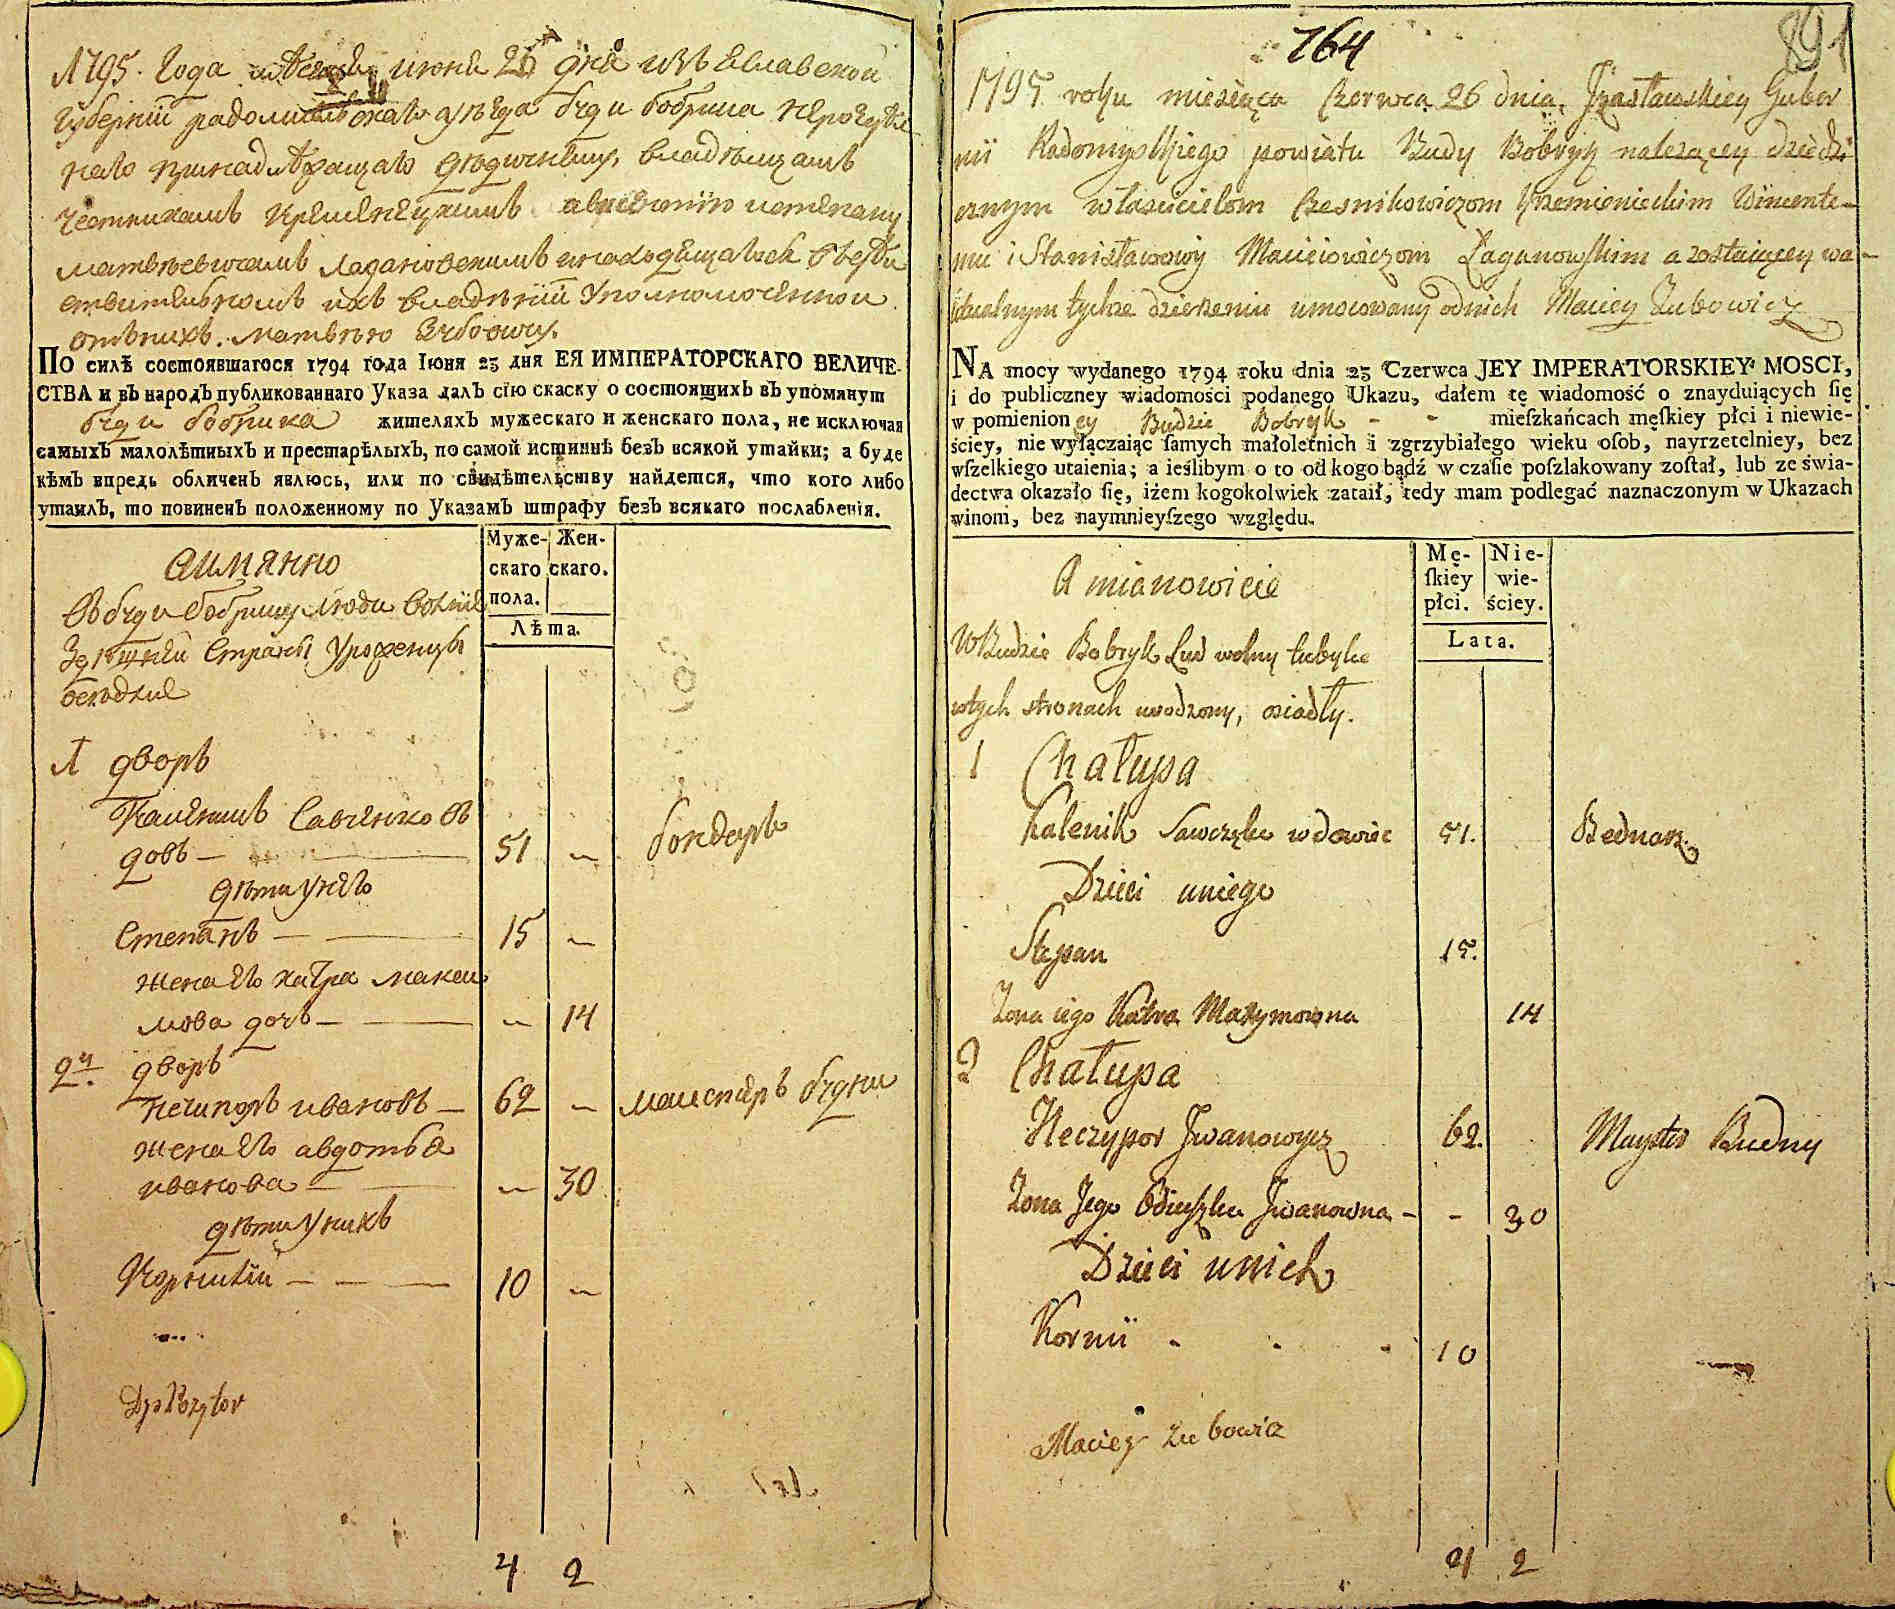 1795. Года июня 26 дня изъ Изяславской
Губерніи радомысльскаго уезда буди бобрика
владельцамъ
Чесникамъ Кременецкимъ
Матвѣевичамъ Лагановскимъ
ихъ владѣніи Уполномоченной
отъ нихъ. Матвѣю Зубовичу.
ПО силѣ состоявшагося 1794 года Іюня 23 дня ЕЯ ИМПЕРАТОРСКАГО ВЕЛИЧЕ-
СТВА и въ народъ публикованнаго Указа далъ сію скаску о состоящихъ въ упомянут
буди бобрика жителяхъ мужескаго и женскаго пола, не исключая
самыхъ малолѣтныхъ и престарѣлыхъ, по самой истиннѣ безъ всякой утайки; а буде
кѣмъ впредь обличенъ явлюсь, или по свидѣтельству найдется, что кого либо
утаилъ, то повиненъ положенному по Указамъ штрафу безъ всякаго послабленія.
Муже-скаго пола. Жен-скаго.
Лѣта.
аимянно
Въ буди бобрику люди волніе
Здешней Страны Уроженцы
оселдие
1 дворъ
Каленикъ Савченко въ
довъ — 51 — бондаръ
дѣти унего
Степанъ — 15 —
жена его катра макси
мова дочь — — 14
2й. дворъ
Нечипоръ ивановъ — 62 — маистеръ будни
жена его авдотья
иванова — — 30
дѣти Унихъ
Корнилій — — — 10 —
4 2
764
891
1795 roku miesiąca Czerwca 26 dnia, Izasławskiey Guber
nii Radomyslskiego powiatu Budy Bobryk należącey dziedzi
cznym włascicielom Czesnikowiczom Krzemienieckim Wincente-
mu i Stanisławowi Macieiowiczom Łaganowskim a zostaiącey wa-
ktualnym tychże dzierżeniu umocowany odnich Maciey Zubowicz
NA mocy wydanego 1794 roku dnia 23 Czerwca JEY IMPERATORSKIEY MOSCI,
i do publiczney wiadomości podanego Ukazu, dałem tę wiadomość o znayduiących się
w pomienioney Budzie Bobryk - - mieſzkańcach męſkiey płci i niewie-
ściey, nie wyłączaiąc ſamych małoletnich i zgrzybiałego wieku oſob, nayrzetelniey, bez
wſzelkiego utaienia; a ieślibym o to od kogo bądź w czaſie poſzlakowany zoſtał, lub ze świa-
dectwa okazało się, iżem kogokolwiek zataił, tedy mam podlegać naznaczonym w Ukazach
winom, bez naymnieyſzego względu.
Mę-ſkiey płci. Nie-wie-ściey.
Lata.
A mianowicie
W Budzie Bobryk Lud wolny tubylce
wtych stronach urodzony, osiadły.
1 Chałupa
Kalenik Sawczęko wdowiec 51. Bednarz
Dzieci uniego
Stepan 15.
Zona iego Katra Maxymowna 14
2 Chałupa
Neczypor Iwanowycz 62. Maystr Budny
Zona Jego Odiuszka Iwanowna - - 30
Dzieci unich
Kornii - - - 10
Maciey Zubowicz
4 2